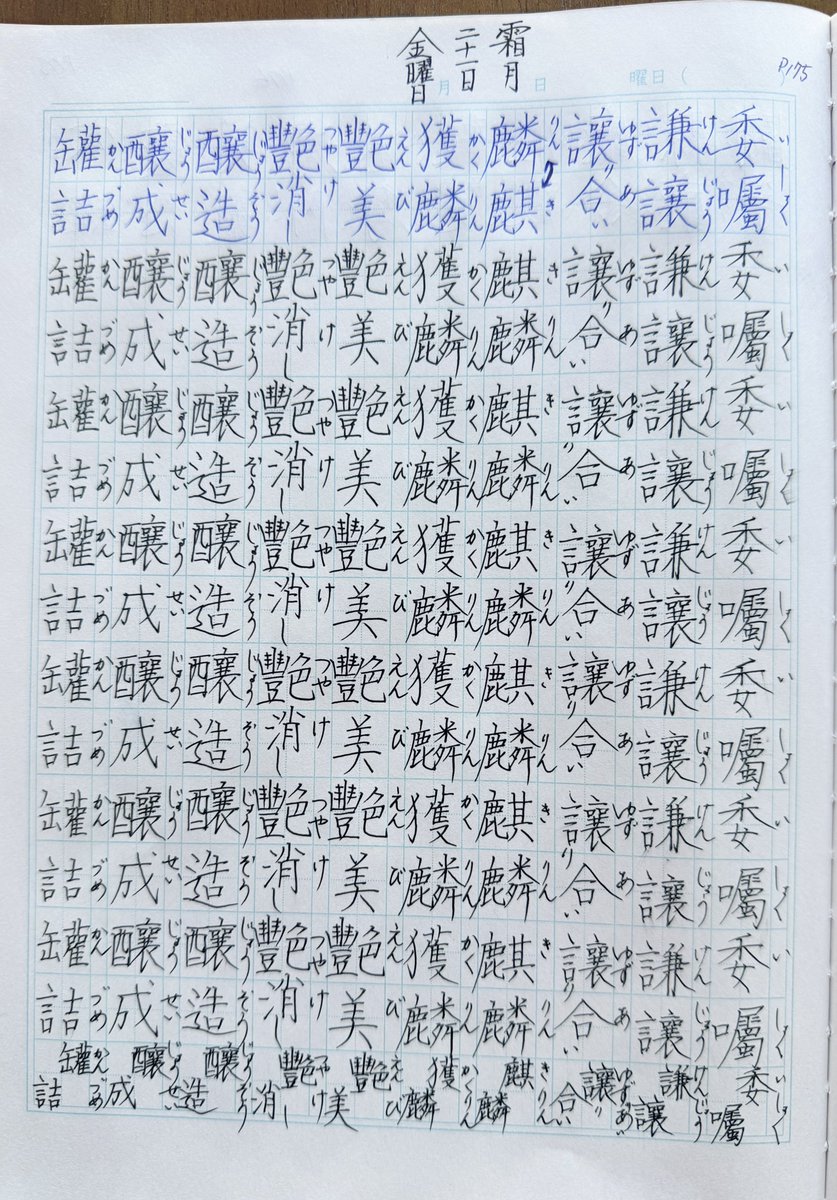 P175
霜月
二十一日
金曜日
月 日 曜日（
委囑委囑委囑委囑委囑委囑委囑委囑
いしょくいしょくいしょくいしょくいしょくいしょくいしょくいしょく
謙讓謙讓謙讓謙讓謙讓謙讓謙讓謙讓
けんじょうけんじょうけんじょうけんじょうけんじょうけんじょうけんじょうけんじょう
讓り合い讓り合い讓り合い讓り合い讓り合い讓り合い讓り合い讓り合い
ゆずあゆずあゆずあゆずあゆずあゆずあゆずあゆずあ
麟麒麒麟麒麟麒麟麒麟麒麟麒麟麒麟
りんききりんきりんきりんきりんきりんきりんきりん
獲麟獲麟獲麟獲麟獲麟獲麟獲麟獲麟
かくりんかくりんかくりんかくりんかくりんかくりんかくりんかくりん
艷美艷美艷美艷美艷美艷美艷美艷美
えんびえんびえんびえんびえんびえんびえんびえんび
艷消し艷消し艷消し艷消し艷消し艷消し艷消し艷消し
つやけつやけつやけつやけつやけつやけつやけつやけ
釀造釀造釀造釀造釀造釀造釀造釀造
じょうぞうじょうぞうじょうぞうじょうぞうじょうぞうじょうぞうじょうぞうじょうぞう
釀成釀成釀成釀成釀成釀成釀成釀成
じょうせいじょうせいじょうせいじょうせいじょうせいじょうせいじょうせいじょうせい
罐詰罐詰罐詰罐詰罐詰罐詰罐詰罐詰
かんづめかんづめかんづめかんづめかんづめかんづめかんづめかんづめ